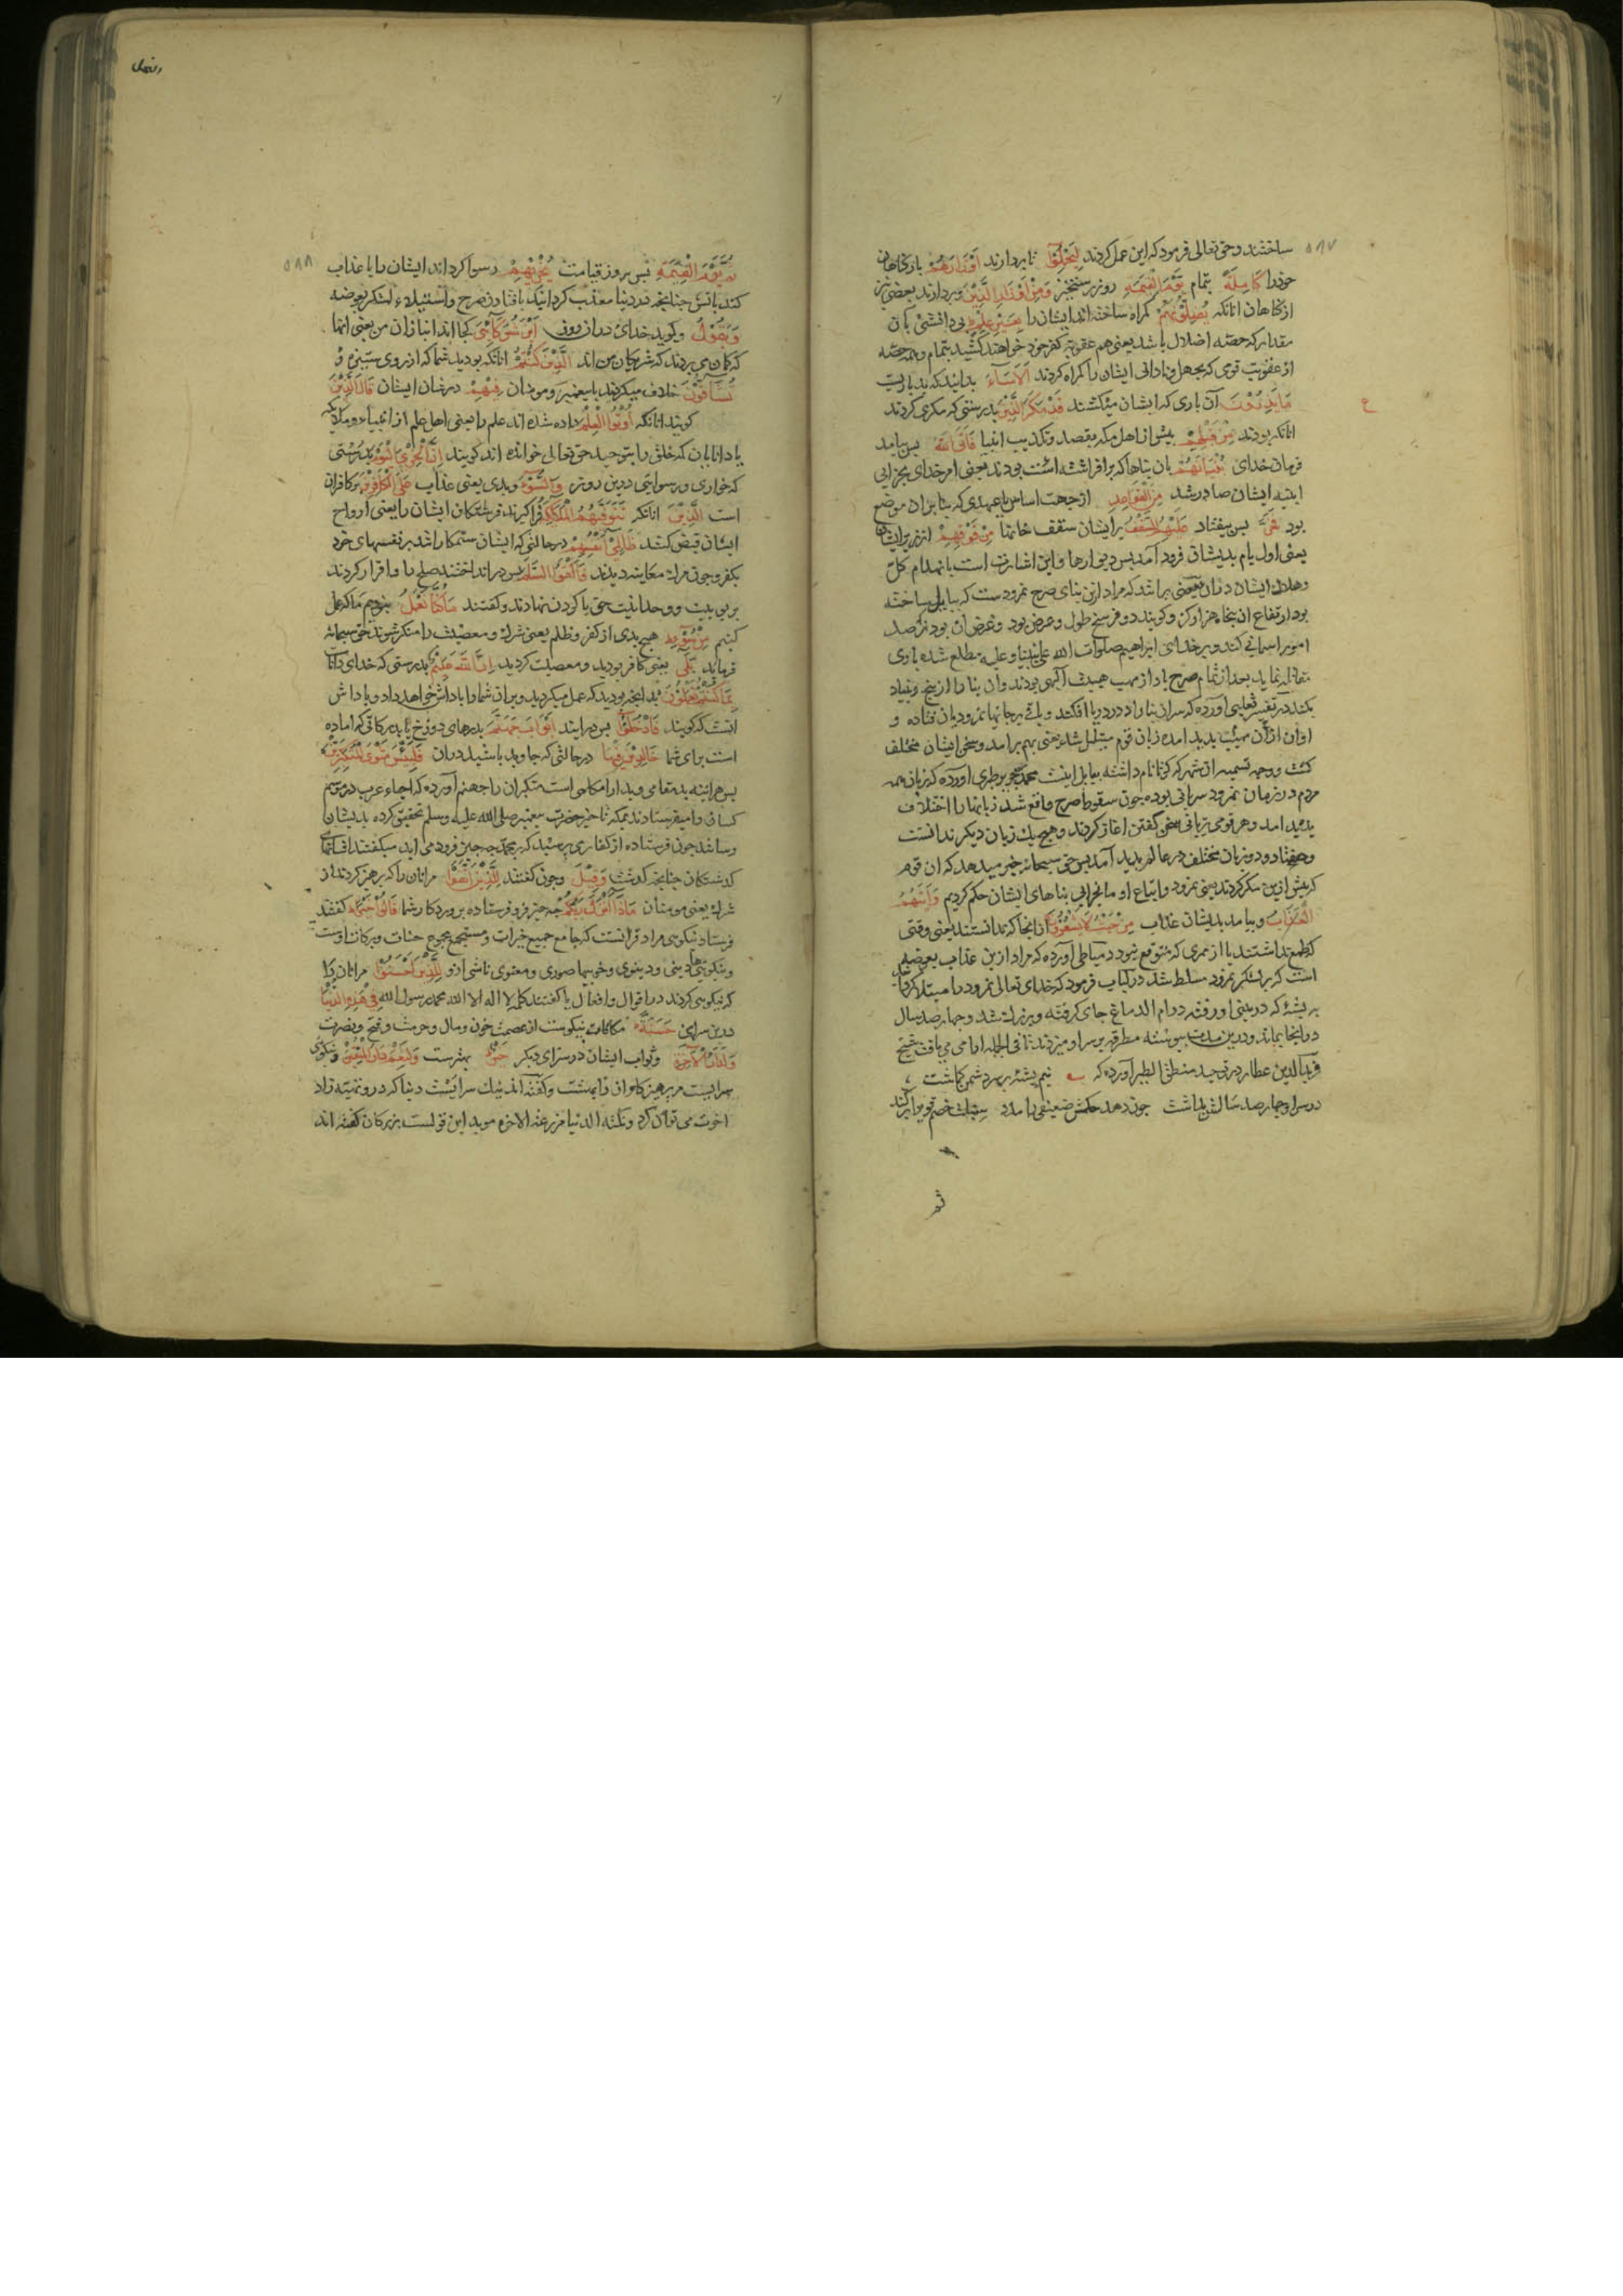 ساختند وحق تعالی فرمود که این عمل کردند لِيَحْمِلُوا تا بردارند اَوْزَارَهُمْ بار گناهان
خود را كَامِلَةً بتمام يَوْمَ الْقِيٰمَةِ روز رستخیز وَمِنْ اَوْزَارِ الَّذِيْنَ وبردارند بعضی نیز
از گناهان انانکه يُضِلُّوْنَهُمْ گمراه ساخته اند ایشان را بِغَيْرِ عِلْمٍ بی دانشی بآن
مقدار که حصّه اضلال باشد یعنی هم عقوبة کفر خود خواهند کشید بتمام وهم حصّه
از عقوبت قومی که بجهل ونادانی ایشان را گمراه کردند اَلَا سَآءَ بدانید که بد باریست
مَا يَزِرُوْنَ آن باری که ایشان میکشند قَدْ مَكَرَ الَّذِيْنَ بدرستی که مکری کردند
انانکه بودند مِنْ قَبْلِهِمْ پیش از اهل مکه بقصد وتکذیب انبیا فَاَتَى اللهُ پس بیامد
فرمان خدای بُنْيَانَهُمْ بان بناها که برافراشته است بودند یعنی امر خدای بخرابی
ابنیه ایشان صادر شد مِنَ الْقَوَاعِدِ از جهت اساس یا عمدی که بنا بران موضع
بود فَخَرَّ پس بیفتاد عَلَيْهِمُ السَّقْفُ بر ایشان سقف خانها مِنْ فَوْقِهِمْ از زبر ایشان
یعنی اول بام بدیشان فرود آمد پس دیوارها واین اشارت است بانهدام کلّ
وهلاک ایشان دران بعضی برانند که مراد ازین بنای صرح نمرودست که ببابل ساخته
بود ارتفاع ان پنجاه هزار گز وگویند دو فرسخ طول وعرض بود وغرض ان بود که رصد
امور اسمانی کند وبر خدای ابراهیم صلوات الله علی نبینا وعلیه مطلع شده با وی
مقاتله نماید بعد از تمام صرح باد از مهب هیبت الهی بوزند وان بنا را از بیخ وبنیاد
بکند در تفسیر ثعلبی آورده که سران بنا را در دریا افکند وباقی بر جانهای نمرودیان فتاده و
اوان ازان مهیب پدید امده زبان قوم متبلبل شد یعنی بهم برامد وسخن ایشان مختلف
گشت ووجه تسمیه ان شهر که کوثا نام داشته ببابل اینست محمد جریر طبری اورده که زبان همه
مردم در زمان نمرود سریانی بوده چون سقوط صرح واقع شد زبانها را اختلاف
پدید امد وهر قومی بزبانی سخن گفتن اغاز کردند وهیچ یک زبان دیگر ندانست
وهفتاد ودو زبان مختلف در عالم پدید آمد پس حق سبحانه خبر میدهد که ان قوم
که پیش ازین مکر کردند یعنی نمرود واتباع او ما بخرابی بناهای ایشان حکم کردیم وَاَتٰىهُمُ
الْعَذَابُ وبیامد بدیشان عذاب مِنْ حَيْثُ لَا يَشْعُرُوْنَ از انجا که ندانستند یعنی وقتی
که طمع نداشتند یا از ممری که متوقع نبود دمیاطی آورده که مراد ازین عذاب بعوضه
است که بر لشکر نمرود مسلط شد در کتاب فرمود که خدای تعالی نمرود را مبتلا گردانید
به پشهٔ که در بینی او رفته در وام الدماغ جای گرفته وبزرگ شد وچهار صد سال
در انجا بماند ودرین مدت پیوسته مطرقه بر سر او میزدند تا فی الجمله ارامی می یافت شیخ
فرید الدین عطار در توحید منطق الطیر آورده که نیم پشه بر سر دشمن گماشت
در سر او چهار صد سالش بداشت چون دهد حکمش ضعیفی را مدد سبلت خصم قوی را برکند
ثم
۵۸۷
ع
ثُمَّ يَوْمَ الْقِيٰمَةِ پس بروز قیامت يُخْزِيْهِمْ رسوا گرداند ایشان را یا عذاب
کند باتش چنانچه در دنیا معذب گردانید بافتادن صرح واستیلاء لشکر بعوضه
وَيَقُوْلُ وگوید خدای دران روز اَيْنَ شُرَكَآئِيَ کجا اند انبازان من یعنی انها
که گمان می بردند که شریکان من اند الَّذِيْنَ كُنْتُمْ انانکه بودید شما که از روی ستیزه
تُشَآقُّوْنَ خلاف میکردند با پیغمبر ومومنان فِيْهِمْ در شان ایشان قَالَ الَّذِيْنَ
گویند انانکه اُوْتُوا الْعِلْمَ داده شده اند علم را یعنی اهل علم از انبیاء وملایکه
یا دانایان که خلق را بتوحید حق تعالی خوانده اند گویند اِنَّ الْخِزْيَ الْيَوْمَ بدرستی
که خواری ورسوایی درین روز وَالسُّوْٓءَ وبدی یعنی عذاب عَلَى الْكٰفِرِيْنَ بر کافران
است الَّذِيْنَ انانکه تَتَوَفّٰىهُمُ الْمَلٰٓئِكَةُ فراگیرند فرشتگان ایشان را یعنی ارواح
ایشان قبض کنند ظَالِمِيْٓ اَنْفُسِهِمْ در حالتی که ایشان ستمکار باشند بر نفسهای خود
بکفر وچون مرگ معاینه دیدند فَاَلْقَوُا السَّلَمَ پس در انداختند صلح را واقرار کردند
بربوبیت ووحدانیت حق یا گردن نهادند وگفتند مَا كُنَّا نَعْمَلُ نبودیم ما که عمل
کنیم مِنْ سُوْٓءٍ هیچ بدی از کفر وظلم یعنی شرک ومعصیت را منکر شوند حق سبحانه
فرماید بَلٰٓى یعنی کافر بودید ومعصیت کردید اِنَّ اللهَ عَلِيْمٌ بدرستی که خدای داناست
بِمَا كُنْتُمْ تَعْمَلُوْنَ بدانچه بودید که عمل میکردید وبران شما را پاداش خواهد داد وپاداش
انست که گویند فَادْخُلُوْٓا پس درایید اَبْوَابَ جَهَنَّمَ بدرهای دوزخ یا بدرکاتی که اماده
است برای شما خَالِدِيْنَ فِيْهَا در حالتی که جاوید باشید دران فَلَبِئْسَ مَثْوَى الْمُتَكَبِّرِيْنَ
پس هراینه بد مقامی وبد ارامگاهی است متکبران را جهنم آورده که احیاء عرب در موسم
کسان را میفرستادند بمکه تا خبر حضرت پیغمبر صلی الله علیه وسلم تحقیق کرده بدیشان
رسانند چون فرستاده از کفاری پرسید که بر محمد چه چیز فرود می اید میگفتند افسانهای
گذشتگان چنانچه گذشت وَقِيْلَ وچون گفتند لِلَّذِيْنَ اتَّقَوْا مرانان را که پرهیز کردند از
شرک یعنی مومنان مَاذَآ اَنْزَلَ رَبُّكُمْ چه چیز فرو فرستاده پروردکار شما قَالُوْا خَيْرًا گفتند
فرستاد نیکویی مراد قرانست که جامع جمیع خیرات ومستجمع مجموع حسنات وبرکات اوست
ونیکوییهای دینی ودنیوی وخوبیها صوری ومعنوی ناشی ازو لِلَّذِيْنَ اَحْسَنُوْا مرانان را
که نیکویی کردند در اقوال وافعال یا گفتند کلمه لا اله الا الله محمد رسول الله فِيْ هٰذِهِ الدُّنْيَا
درین سرای حَسَنَةٌ مکافات نیکوست از عصمت خون ومال وحرمت وفتح ونصرت
وَلَدَارُ الْاٰخِرَةِ وثواب ایشان در سرای دیگر خَيْرٌ بهترست وَلَنِعْمَ دَارُ الْمُتَّقِيْنَ ونیکوی
سراییست مر پرهیزکاران را بهشت وگفته اند نیک سراییست دنیا که درو تهیه زاد
اخرت می توان کرد ونکته الدنیا مزرعة الاخرة موید این قولست بزرگان گفته اند
۵۸۸